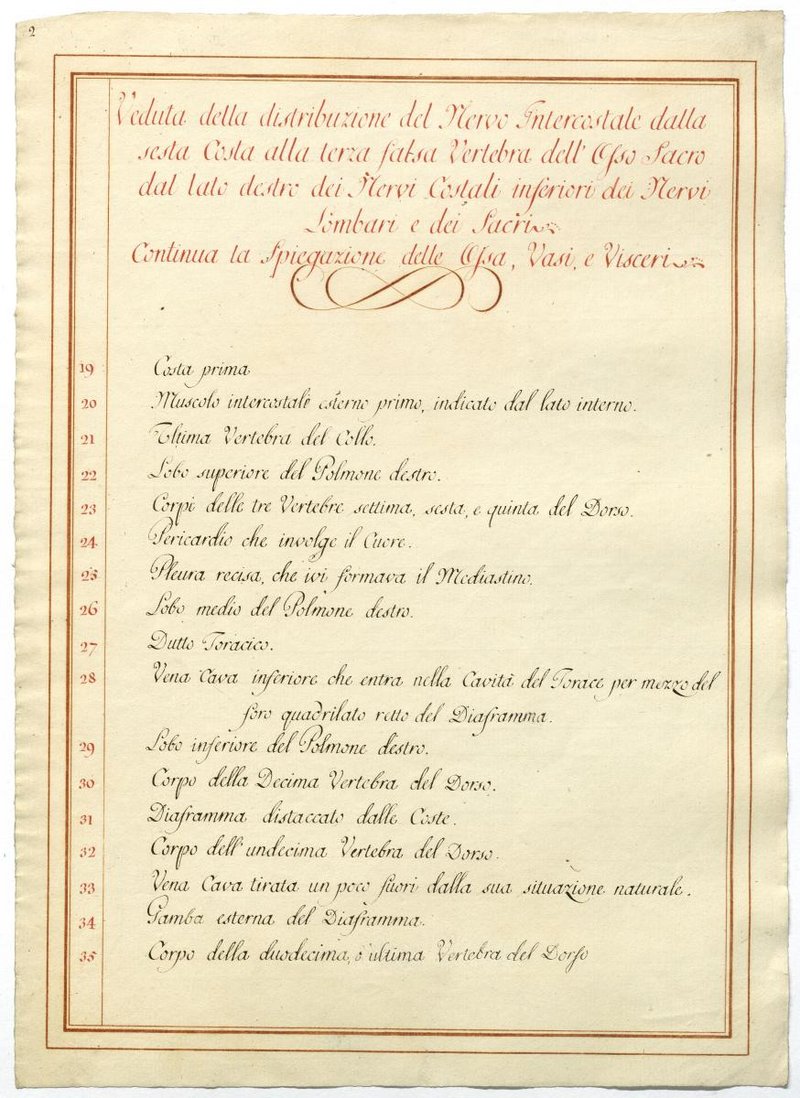 2
Veduta della distribuzione del Nervo Intercostale dalla
sesta Costa alla terza falsa Vertebra dell' Osso Sacro
dal lato destro dei Nervi Costali inferiori dei Nervi
Lombari e dei Sacri
Continua la Spiegazione delle Ossa, Vasi, e Visceri
19 Costa prima
20 Muscolo intercostale esterno primo, indicato dal lato interno.
21 Ultima Vertebra del Collo.
22 Lobo superiore del Polmone destro.
23 Corpi delle tre Vertebre settima, sesta, e quinta del Dorso.
24 Pericardio che involge il Cuore.
25 Pleura recisa, che ivi formava il Mediastino.
26 Lobo medio del Polmone destro.
27 Dutto Toracico.
28 Vena Cava inferiore che entra nella Cavità del Torace per mezzo del
foro quadrilato retto del Diaframma.
29 Lobo inferiore del Polmone destro.
30 Corpo della Decima Vertebra del Dorso.
31 Diaframma distaccato dalle Coste.
32 Corpo dell' undecima Vertebra del Dorso.
33 Vena Cava tirata un poco fuori dalla sua situazione naturale.
34 Gamba esterna del Diaframma.
35 Corpo della duodecima, o ultima Vertebra del Dorso